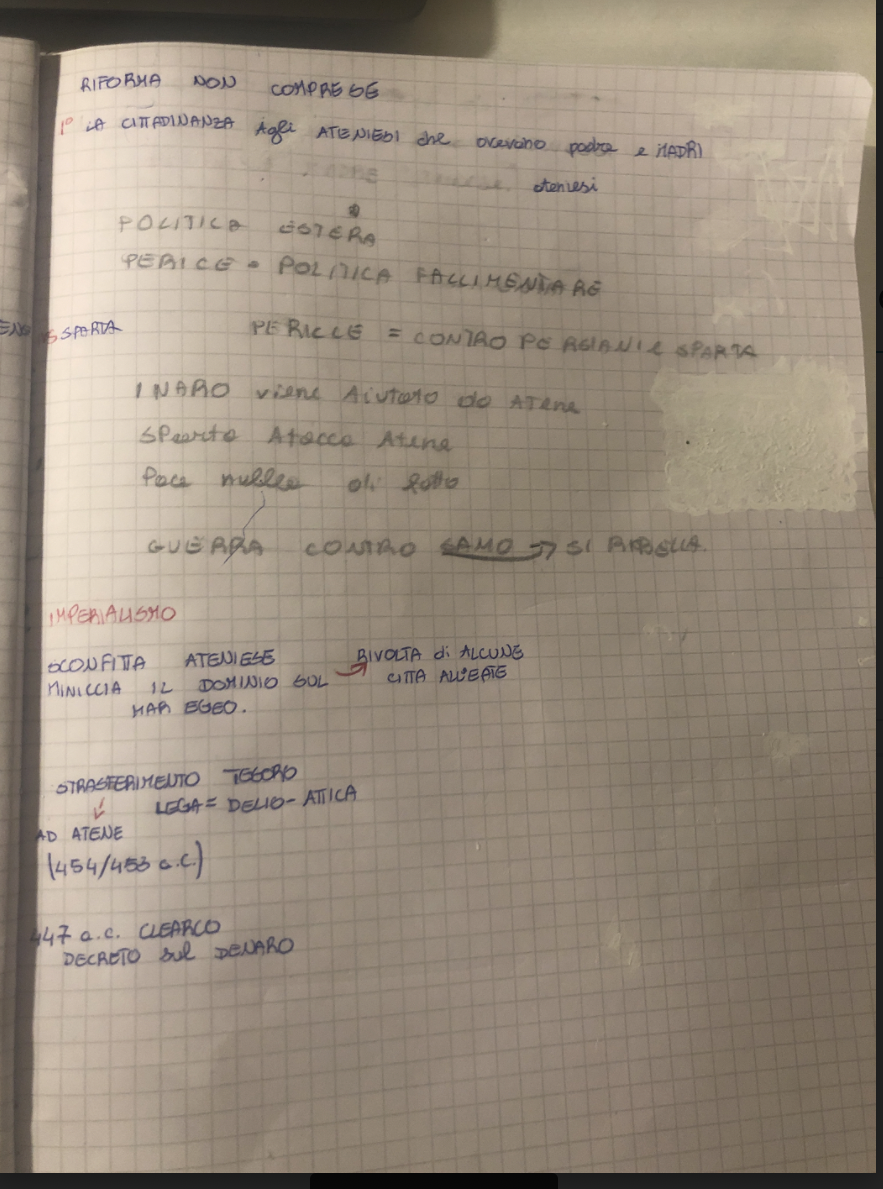 RIFORMA NON COMPRESE
1° LA CITTADINANZA Agli ATENIESI che avevano padre e MADRI
ateniesi
POLITICA ESTERA
PERICE = POLITICA FALLIMENTARE
SPARTA
PERICLE = CONTRO PERSIANI e SPARTA
INARO viene Aiutato da Atene
Sparta Attacca Atene
Pace nulla di fatto
GUERRA CONTRO SAMO → SI RIBELLA.
IMPERIALISMO
SCONFITTA ATENIESE
MINICCIA IL DOMINIO SUL →
MAR EGEO.
RIVOLTA di ALCUNE
CITTA ALLEATE
STRASFERIMENTO TESORO
LEGA = DELIO-ATTICA
AD ATENE
(454/453 a.C.)
447 a.c. CLEARCO
DECRETO sul DENARO